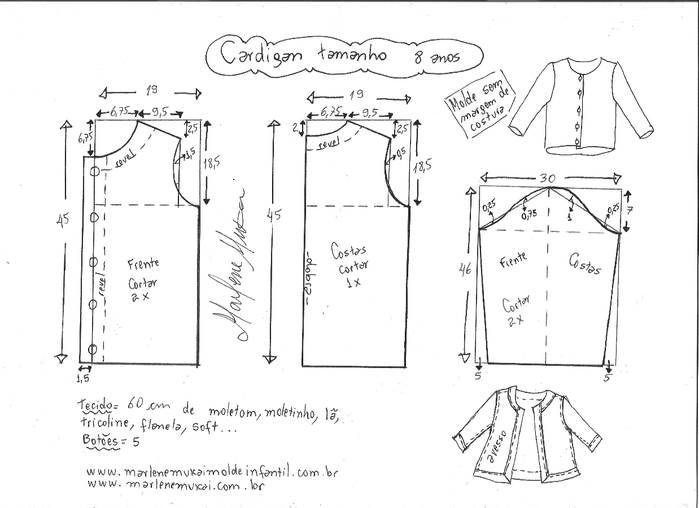 Cardigan tamanho 8 anos
Molde sem
margem de
costura
19
6,75
9,5
6,75
2,5
1,5
18,5
45
revel
revel
Frente
Cortar
2x
1,5
Marlene Mukai
19
6,75
9,5
2
2,5
18,5
45
revel
-dobra-
Costas
cortar
1x
30
0,25
0,75
1
0,25
7
46
Frente
Costas
Cortar
2x
5
5
Tecido= 60 cm de moletom, moletinho, lã,
tricoline, flanela, soft...
Botões= 5
www.marlenemukaimoldeinfantil.com.br
www.marlenemukai.com.br
avesso